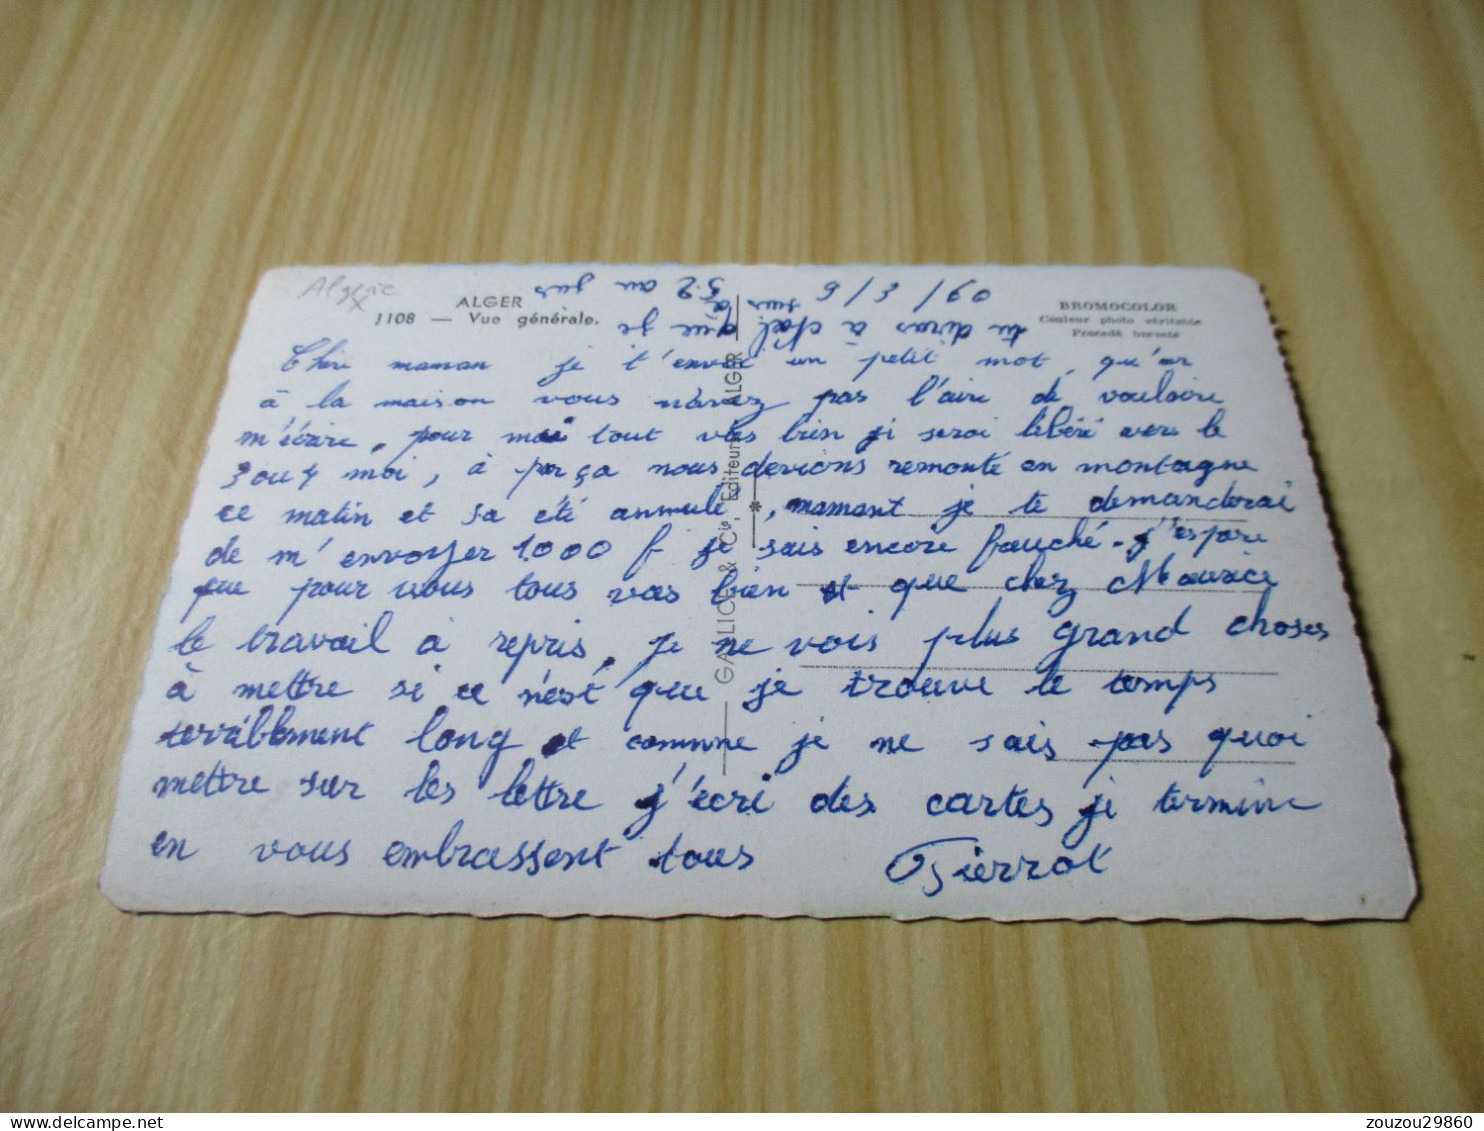 Algérie
ALGER
1108 — Vue générale.
BROMOCOLOR
Couleur photo véritable
Procédé breveté
GALICE & Cie, Editeurs, ALGER
6/3/60
tu diras à que je
suis là 52 au jus
Chère maman je t'envoi un petit mot, qu'ar
à la maison vous n'avez pas l'aire de vouloire
m'écrire, pour moi tout vas bien je serai libéré vers le
3 ou 4 moi, à par ça nous devions remonté en montagne
ce matin et sa été annulé, mamant je te demanderai
de m'envoyer 1.000 f je sais encore fauché. j'espère
que pour vous tous vas bien et que chez Maurice
le travail à repris, je ne vois plus grand choses
à mettre si ce n'est que je trouve le temps
terriblement long et comme je ne sais pas quoi
mettre sur les lettre j'écri des cartes je termine
en vous embrassent tous Pierrot
zouzou29860